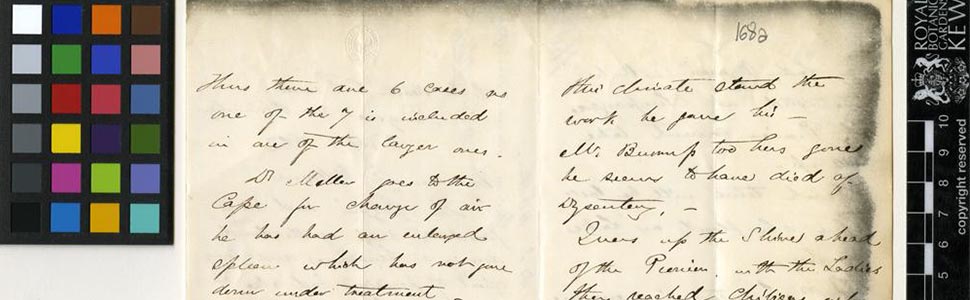 Thus there are 6 cases as
one of the 7 is included
in one of the larger ones.
Dr Meller goes to the
Cape for change of air
he has had an enlarged
spleen which has not gone
down under treatment
168a
this climate stand the
work he gave his —
Mr. Burrup too has gone
he seems to have died of
Dysentery. —
I was up the Shire ahead
of the Pioneer. with the Ladies
they reached Chibisas
ROYAL
BOTANIC
GARDENS
KEW
copyright reserved
10
9
8
7
6
5